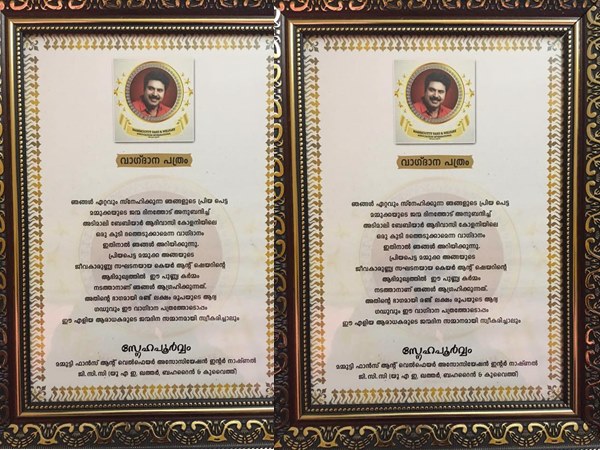 MAMMOOTTY FANS & WELFARE
വാഗ്ദാന പത്രം
ഞങ്ങൾ ഏറ്റവും സ്നേഹിക്കുന്ന ഞങ്ങളുടെ പ്രിയ പെട്ട
മമ്മുക്കയുടെ ജന്മ ദിനത്തോട് അനുബന്ധിച്ച്
അടിമാലി ബേബിയാർ ആദിവാസി കോളനിയിലെ
ഒരു കുടി ദത്തെടുക്കാമെന്ന വാഗ്ദാനം
ഇതിനാൽ ഞങ്ങൾ അറിയിക്കുന്നു.
പ്രിയപെട്ട മമ്മുക്ക അങ്ങയുടെ
ജീവകാരുണ്യ സംഘടനയായ കെയർ ആന്റ് ഷെയറിന്റെ
ആഭിമുഖ്യത്തിൽ ഈ പുണ്യ കർമ്മം
നടത്താനാണ് ഞങ്ങൾ ആഗ്രഹിക്കുന്നത്.
അതിന്റെ ഭാഗമായി രണ്ട് ലക്ഷം രൂപയുടെ ആദ്യ
ഗഡുവും ഈ വാഗ്ദാന പത്രത്തോടൊപ്പം
ഈ എളിയ ആരാധകരുടെ ജന്മദിന സമ്മാനമായി സ്വീകരിച്ചാലും
സ്നേഹപൂർവ്വം
മമ്മുട്ടി ഫാൻസ് ആന്റ് വെൽഫെയർ അസോസിയേഷൻ ഇന്റർ നാഷിണൽ
ജി.സി.സി (യു എ ഇ, ഖത്തർ, ബഹറൈൻ & കുവൈത്ത്)
MAMMOOTTY FANS & WELFARE
വാഗ്ദാന പത്രം
ഞങ്ങൾ ഏറ്റവും സ്നേഹിക്കുന്ന ഞങ്ങളുടെ പ്രിയ പെട്ട
മമ്മുക്കയുടെ ജന്മ ദിനത്തോട് അനുബന്ധിച്ച്
അടിമാലി ബേബിയാർ ആദിവാസി കോളനിയിലെ
ഒരു കുടി ദത്തെടുക്കാമെന്ന വാഗ്ദാനം
ഇതിനാൽ ഞങ്ങൾ അറിയിക്കുന്നു.
പ്രിയപെട്ട മമ്മുക്ക അങ്ങയുടെ
ജീവകാരുണ്യ സംഘടനയായ കെയർ ആന്റ് ഷെയറിന്റെ
ആഭിമുഖ്യത്തിൽ ഈ പുണ്യ കർമ്മം
നടത്താനാണ് ഞങ്ങൾ ആഗ്രഹിക്കുന്നത്.
അതിന്റെ ഭാഗമായി രണ്ട് ലക്ഷം രൂപയുടെ ആദ്യ
ഗഡുവും ഈ വാഗ്ദാന പത്രത്തോടൊപ്പം
ഈ എളിയ ആരാധകരുടെ ജന്മദിന സമ്മാനമായി സ്വീകരിച്ചാലും
സ്നേഹപൂർവ്വം
മമ്മുട്ടി ഫാൻസ് ആന്റ് വെൽഫെയർ അസോസിയേഷൻ ഇന്റർ നാഷിണൽ
ജി.സി.സി (യു എ ഇ, ഖത്തർ, ബഹറൈൻ & കുവൈത്ത്)